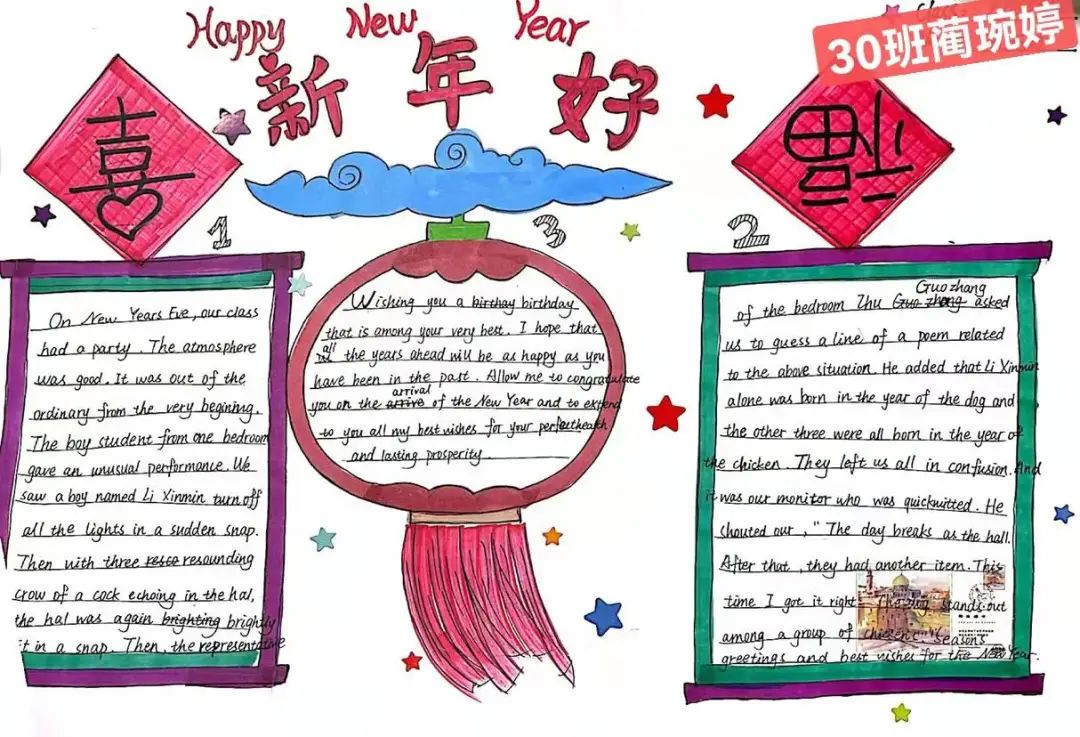 Happy New Year
Class
30班蔺琬婷
新年好
喜
福
1
On New Years Eve, our class
had a party. The atmosphere
was good. It was out of the
ordinary from the very begining.
The boy student from one bedroom
gave an unusual performance. We
saw a boy named Li Xinmin turn off
all the lights in a sudden snap.
Then with three resco resounding
crow of a cock echoing in the hal,
the hal was again brighting brightly
it in a snap. Then, the representative
2
Guozhang
of the bedroom Zhu Guo zhang asked
us to guess a line of a poem related
to the above situation. He added that Li Xinmin
alone was born in the year of the dog and
the other three were all born in the year of
the chicken. They left us all in confusion. And
it was our monitor who was quickwitted. He
shouted our, " The day breaks as the hall.
After that, they had another item. This
time I got it right. The dog stands out
among a group of chickens. "
seasons
greetings and best wishes for the New Year.
3
Wishing you a birthay birthday
that is among your very best. I hope that
all
the years ahead will be as happy as you
have been in the past. Allow me to congratulate
arrival
you on the arrive of the New Year and to extend
to you all my best wishes for your perfect health
and lasting prosperity.